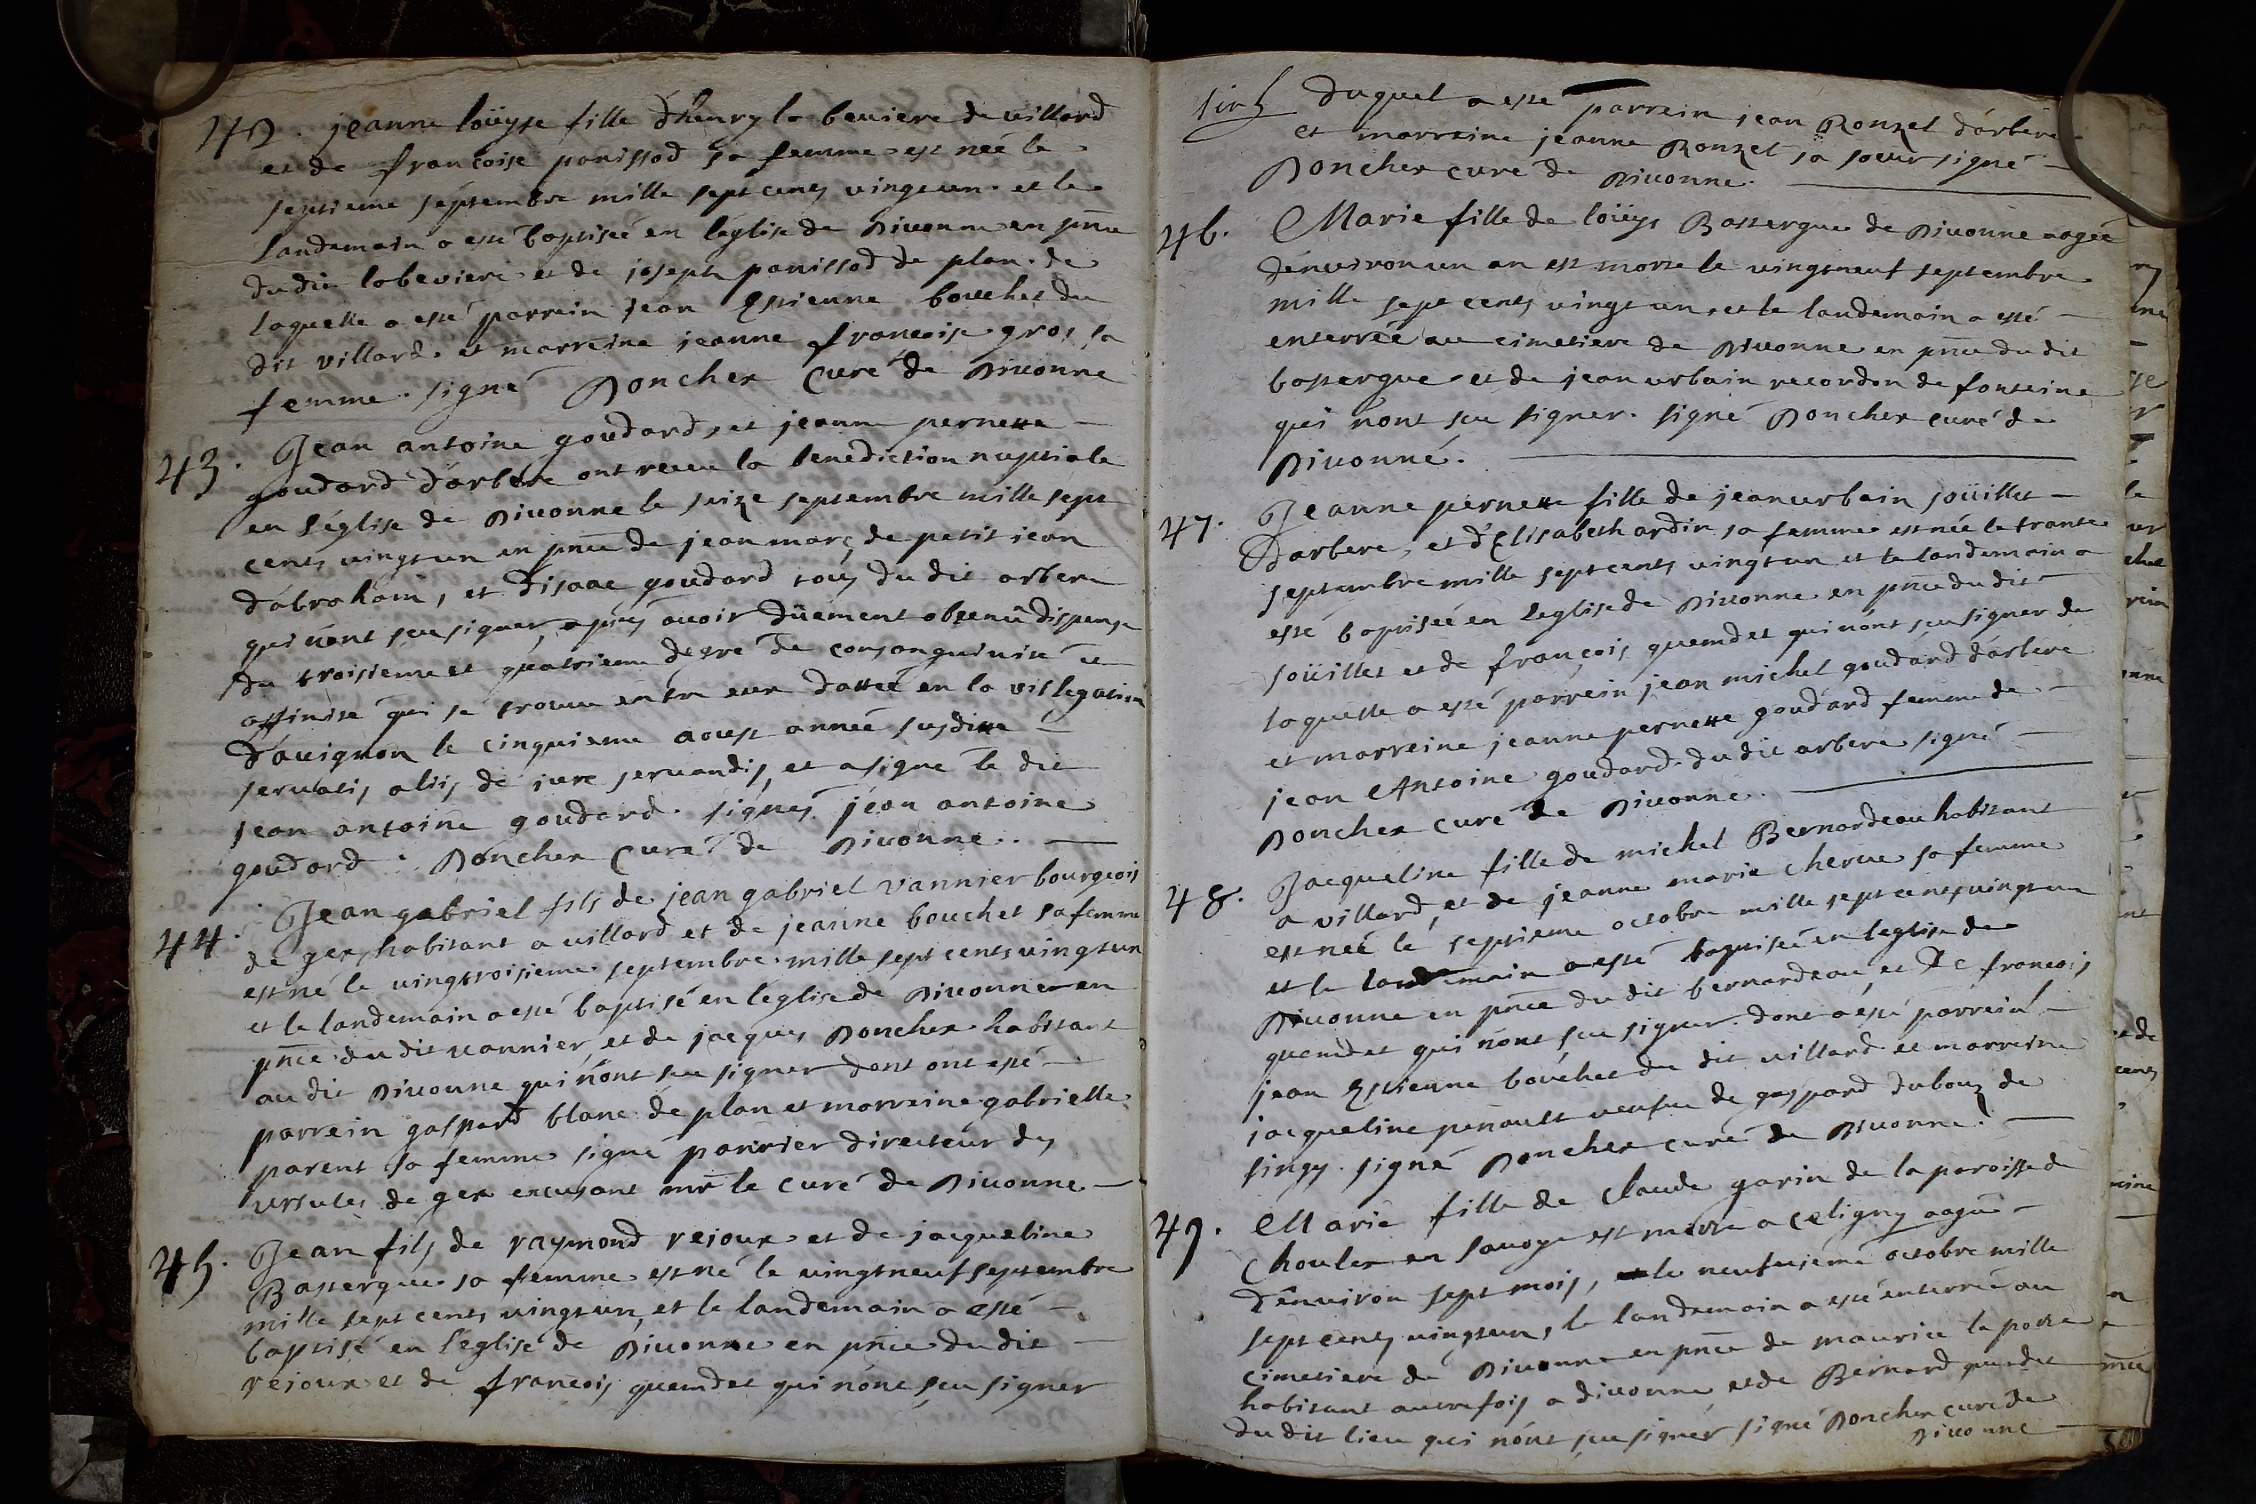 42. jeanne loüyse fille d'henry la beuiere de villard
et de francoise panissod sa femme est née le
septieme séptembre mille sept cents vingt un. et le
landemain a esté baptisée en l'église de Diuonne en pñce
du dit labeviere et de joseph panissod de plan. de
laquelle a esté parrein jean Estienne bouchet du
dit villard. et marreine jeanne francoise gros sa
femme. signé Poncher Curé de Diuonne
43. Jean antoine goudard, et jeanne pernette
goudard d'arbére ont receu la benediction nuptiale
en l'église de Diuonne le seize septembre mille sept
cents vingt un en pñce de jean marc, de petit jean
d'abraham, et d'isaac goudard tous du dit arbere
qui n'ont sceu signer, apres avoir düement obtenû dispense
du troisieme et quatrieme degré de consanguinité et
affinité qui se trouve entre eux dattée en la vislegation
d'auignon le cinquieme aoust année susditte
seruatis aliis de jure seruandis, et a signé le dit
jean antoine goudard. signés jean antoine
goudard : Poncher Curé de Diuonne.
44. Jean gabriel fils de jean gabriel vannier bourgeois
de gex habitant a villard et de jeanne bouchet sa femme
est né le vingt troisieme septembre mille sept cents vingt un
et le landemain a esté baptisé en l'église de Diuonne en
pñce du dit vannier, et de jacques Poncher habitant
au dit Diuonne qui n'ont sceu signer dont ont esté
parrein gaspard blanc de plan et marreine gabrielle
parent sa femme signé panrier directeur des
ursules de gex excusant mr le curé de Diuonne
45. Jean fils de raymond rejoux et de jacqueline
Bassergue sa femme est né le vingt neuf septembre
mille sept cents vingt un, et le landemain a esté
baptisé en l'église de Diuonne en pñce du dit
rejoux et de francois quemdet qui n'ont sceu signer
duquel a esté parrein jean Ronzet d'arbére
et marreine jeanne Ronzet sa soeur signé
Poncher curé de Diuonne.
46. Marie fille de loüys Bassergue de Diuonne aagée
d'enuiron un an est morte le vingt neuf septembre
mille sept cents vingt un, et le landemain a esté
enterrée au cimetiere de Diuonne en pñce du dit
bassergue et de jean urbain recordon de fonteine
qui n'ont sceu signer. signé Poncher curé de
Diuonné.
47. Jeanne pernette fille de jean urbain soüillet
d'arbere, et d'Elisabeth ardin sa femme est née le trante
septembre mille sept cents vingt un et le landemain a
esté baptisée en l'eglise de Diuonne en pñce du dit
soüillet et de françois quemdet qui n'ont sceu signer de
laquelle a esté parrein jean michel goudard d'arbere
et marreine jeanne pernette goudard femme de
jean Antoine goudard du dit arbere signé
Poncher curé de Diuonne.
48. Jacqueline fille de michel Bernardeau habitant
a villard, et de jeanne marie cherue sa femme
est née le septieme octobre mille sept cents vingt un
et le landemain a esté baptisée en l'eglise de
Diuonne en pñce du dit bernardeau, et de francois
quemdet qui n'ont sceu signer. dont a esté parrein
jean Estienne bouchet du dit villard et marreine
jacqueline penault veufue de gaspard dubouz de
singy. signé Poncher curé de Diuonne.
49. Marie fille de Claude garin de la paroisse de
Choulex en sauoye est morte a celigny aagée
d'enuiron sept mois, le neufuieme octobre mille
sept cents vingt un, le landemain a esté enterrée au
cimetiere de Diuonne en pñce de maurice la porte
habitant autrefois a diuonne, et de Bernard quemdet
du dit lieu qui n'ont sceu signer signé Poncher curé de
Diuonne